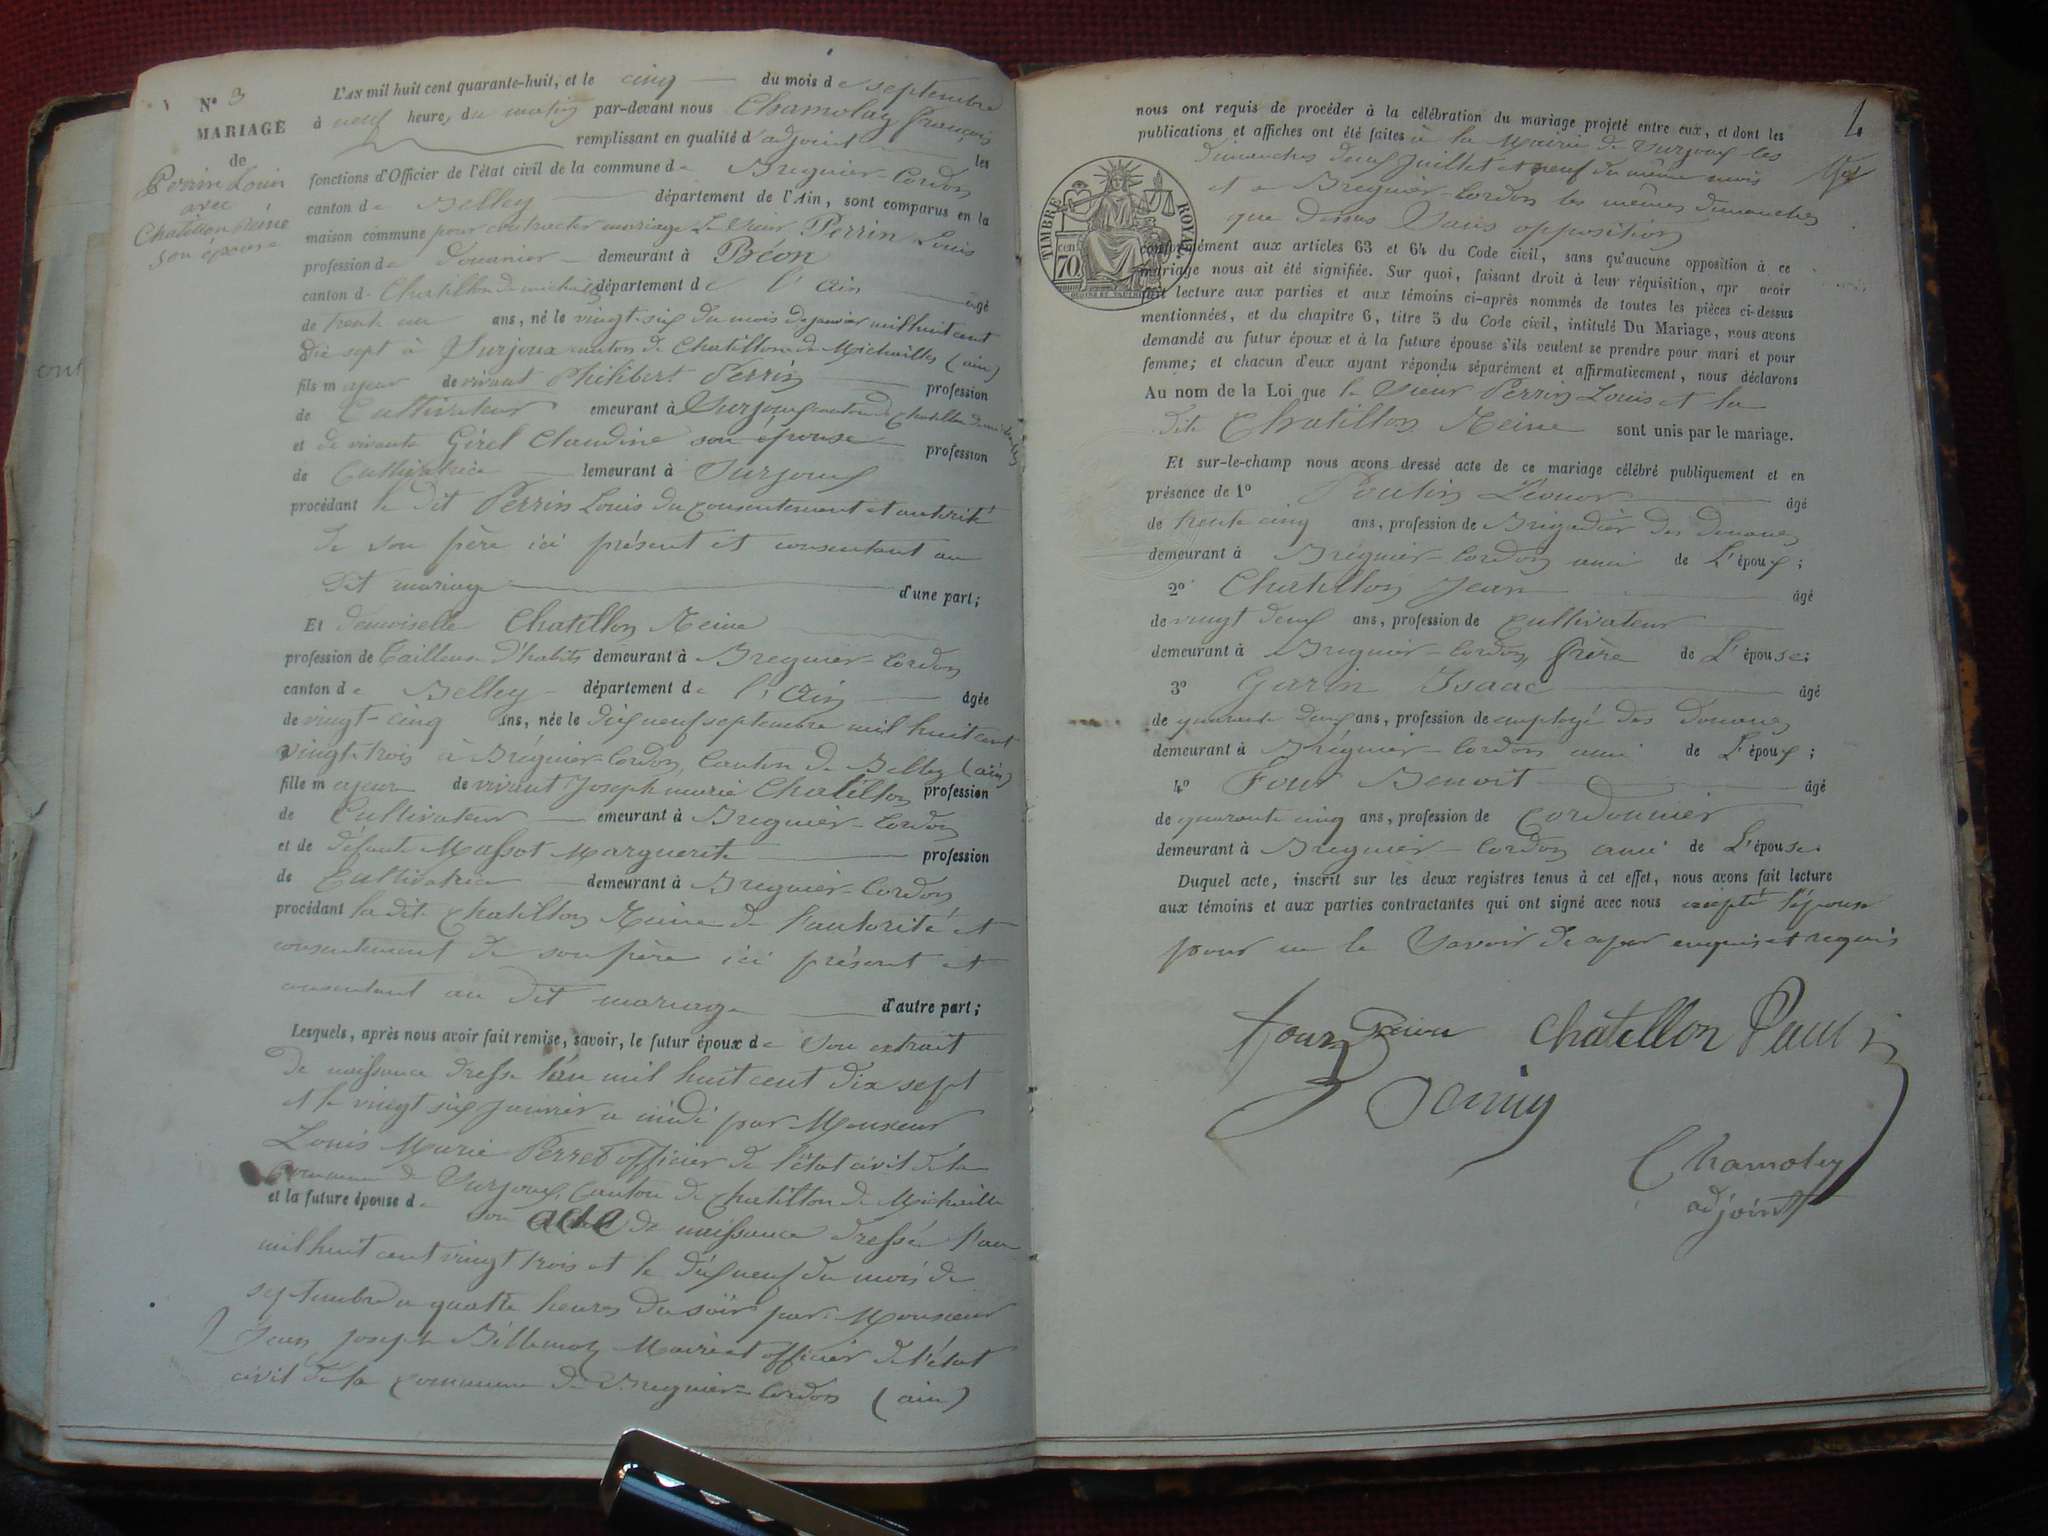 N° 3
MARIAGE
de
Perrin Louis
avec
Chatillon Reine
son épouse
L'AN mil huit cent quarante-huit, et le cinq du mois de septembre
à neuf heures du matin par-devant nous Chamolay françois
remplissant en qualité d'adjoint les
fonctions d'Officier de l'état civil de la commune de Bregnier-Cordon
canton de Belley département de l'Ain, sont comparus en la
maison commune pour contracter mariage Le Sieur Perrin Louis
profession de Douanier demeurant à Béon
canton d Chatillon de michaille département de l'Ain âgé
de trente un ans, né le vingt-six du mois de janvier mil huit cent
dix sept à Surjoux canton de Chatillon de Michailles (ain)
fils majeur de vivant Philibert Perrin profession
de Cultivateur emeurant à Surjoux canton de Chatillon de michailles
et de vivante Girel Claudine son épouse profession
de Cultivatrice demeurant à Surjoux
procédant le dit Perrin Louis du consentement et autorité
de son père ici présent et consentant au
dit mariage d'une part;
Et demoiselle Chatillon Reine
profession de Tailleuse d'habits demeurant à Bregnier-Cordon
canton de Belley département de l'Ain âgée
de vingt-cinq ans, née le dix neuf septembre mil huit cent
vingt trois à Brégnier-Cordon, Canton de Belley (ain)
fille majeur de vivant Joseph marie Chatillon profession
de Cultivateur emeurant à Bregnier-Cordon
et de défunte Massot Marguerite profession
de Cultivatrice demeurant à Bregnier-Cordon
procédant la dite Chatillon Reine de l'autorité et
consentement de son père ici présent et
consentant au dit mariage d'autre part;
Lesquels, après nous avoir fait remise, savoir, le futur époux de son extrait
de naissance dressé l'an mil huit cent dix sept
et le vingt six janvier a midi par Monsieur
Louis Marie Perret officier de l'état civil de la
commune de Surjoux, Canton de Chatillon de Michaille
et la future épouse de son acte de naissance dressé l'an
mil huit cent vingt trois et le dix neuf du mois de
septembre a quatre heures du soir par Monsieur
Jean Joseph Billemaz Maire et officier de l'état
civil de la commune de Bregnier-Cordon (ain)
4
nous ont requis de procéder à la célébration du mariage projeté entre eux, et dont les
publications et affiches ont été faites à la Mairie de Surjoux les
dimanches deux Juillet et neuf du même mois
et a Bregnier-Cordon les mêmes dimanches
que dessus Sans opposition
TIMBRE ROYAL
70
conformément aux articles 63 et 64 du Code civil, sans qu'aucune opposition à ce
mariage nous ait été signifiée. Sur quoi, faisant droit à leur réquisition, apr avoir
fait lecture aux parties et aux témoins ci-après nommés de toutes les pièces ci-dessus
mentionnées, et du chapitre 6, titre 5 du Code civil, intitulé Du Mariage, nous avons
demandé au futur époux et à la future épouse s'ils veulent se prendre pour mari et pour
femme; et chacun d'eux ayant répondu séparément et affirmativement, nous déclarons
Au nom de la Loi que le Sieur Perrin Louis et la
dite Chatillon Reine sont unis par le mariage.
Et sur-le-champ nous avons dressé acte de ce mariage célébré publiquement et en
présence de 1° Poutin Léonor âgé
de trente cinq ans, profession de Brigadier des Douanes
demeurant à Brégnier-Cordon ami de L'époux;
2° Chatillon Jean âgé
de vingt deux ans, profession de cultivateur
demeurant à Brégnier-Cordon, frère de L'épouse;
3° Garin Isaac âgé
de quarante deux ans, profession de employé des Douanes
demeurant à Brégnier-Cordon ami de L'époux;
4° Four Benoit âgé
de quarante cinq ans, profession de Cordonnier
demeurant à Bregnier-Cordon ami de L'épouse.
Duquel acte, inscrit sur les deux registres tenus à cet effet, nous avons fait lecture
aux témoins et aux parties contractantes qui ont signé avec nous excepté l'épouse
pour ne le Savoir de ce par enquis et requis
four Perrin Chatillon
Chamolay
adjoint